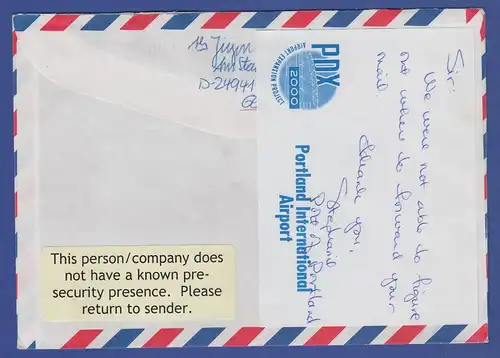 D-24941
Sir:
We were not able to figure
out where to forward your
mail.
Thank you,
Stephanie
Port of Portland
PDX
AIRPORT EXPANSION PROJECT
2000
Portland International
Airport
This person/company does
not have a known pre-
security presence. Please
return to sender.